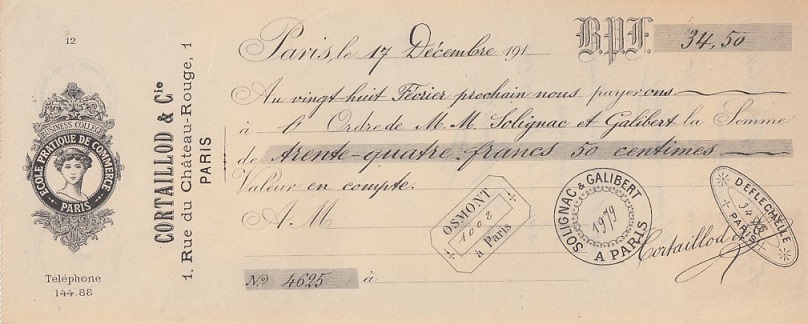 12
BUSINESS COLLEGE
ECOLE PRATIQUE DE COMMERCE
PARIS
Téléphone
144.88
CORTAILLOD & Cie
1, Rue du Château-Rouge, 1
PARIS
Paris, le 17 Décembre 191
B.P.F. 34,50
Au vingt-huit Février prochain nous payerons
à l' Ordre de M. M. Solignac et Galibert la Somme
de trente-quatre francs 50 centimes
Valeur en compte.
A M
OSMONT
1002
à Paris
SOLIGNAC & GALIBERT
1979
A PARIS
DEFLECHELLE
34
PARIS
Cortaillod
No 4625 à